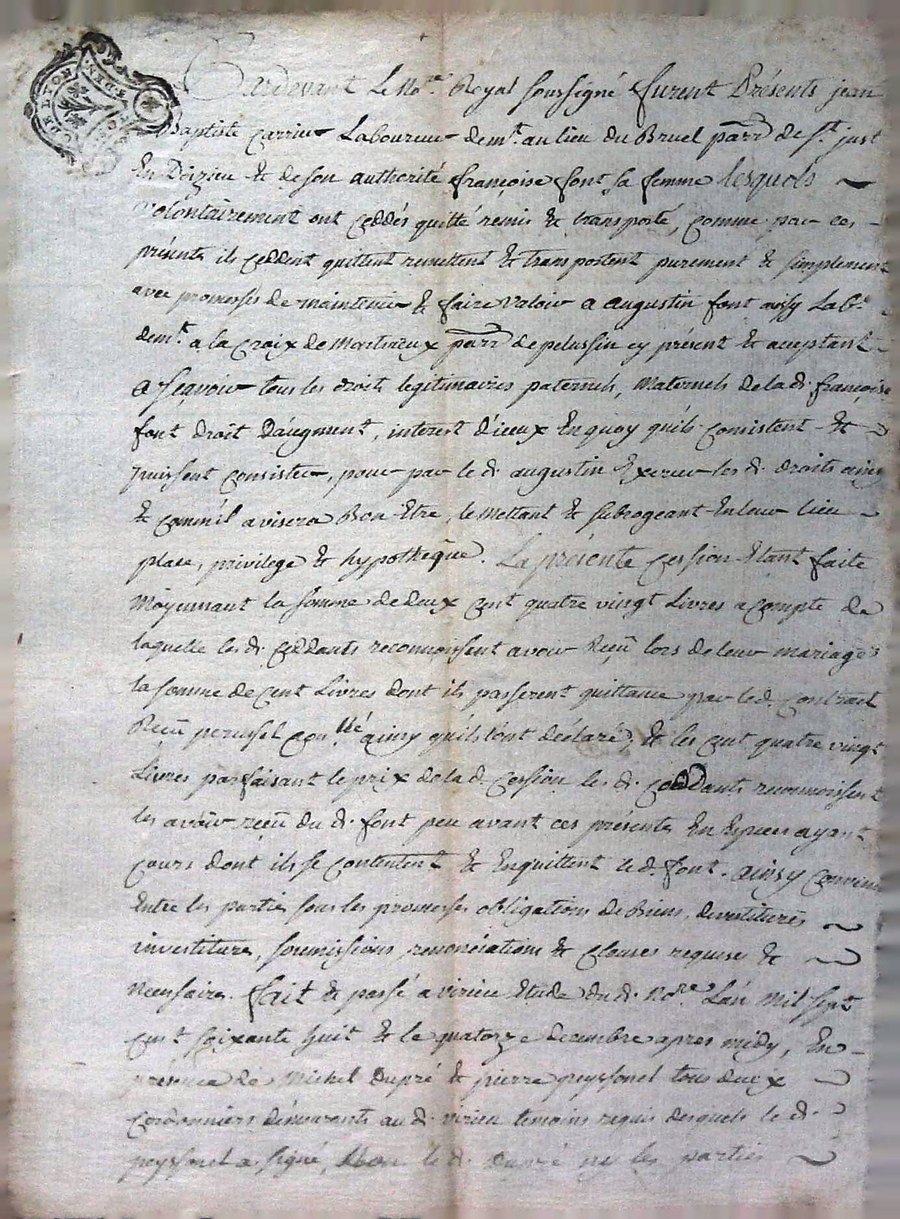 DE LYON
Pardevant Le No.re Royal soussigné furent Présents jean
Baptiste Carrier Laboureur dem.t au lieu du Bruel parr. de S.t just
En Doizieu & de son authorité françoise font sa femme lesquels
volontairement ont ceddés quitté remis & transporté, comme par ces
présentes ils ceddent quittent remettent & transportent purement & simplement
avec promesses de maintenir & faire valoir a augustin font aussy Lab.r
dem.t a la Croix de Montvieux parr. de pelussin cy présent & acceptant
a sçavoir tous les droits legitimaires paternels, Maternels de la d. françoise
font droit D'augment, interest d'iceux En quoy qu'ils consistent &
puissent consister, pour par le d. augustin Exercer les d. droits ainsy
& comm'il avisera Bon Etre, le Mettant & subrogeant En leur lieu
place, privilege & hypotheque. La présente cession Etant faite
Moyennant la somme de deux cent quatre vingt Livres a compte de
laquelle les d. Ceddants reconnoissent avoir Reçû lors de leur mariage
la somme de cent Livres dont ils passerent quittance par led. Contract
Reçû peyssel ainsy qu'ils l'ont déclaré, & les cent quatre vingt
Livres parfaisant le prix de la d. Cession les d. Ceddants reconnoissent
les avoir reçû du d. font peu avant ces présentes En Especes ayant
cours dont ils se contentent & Enquittent le d. font. ainsy convenu
Entre les parties sous les promesses obligations de Biens, devestitures
investiture, soumissions, renonciations & Clauses requises &
Necessaires. fait & passé a virieu Etude du d. No.re L'an Mil sept
cent soixante huit & le quatorze decembre apres midy, En
presence de Michel Dupré & pierre peyssonel tous deux
cordonniers demeurants au d. virieu temoins requis desquels le d.
peyssonel a signé, Non le d. Dupré ny les parties